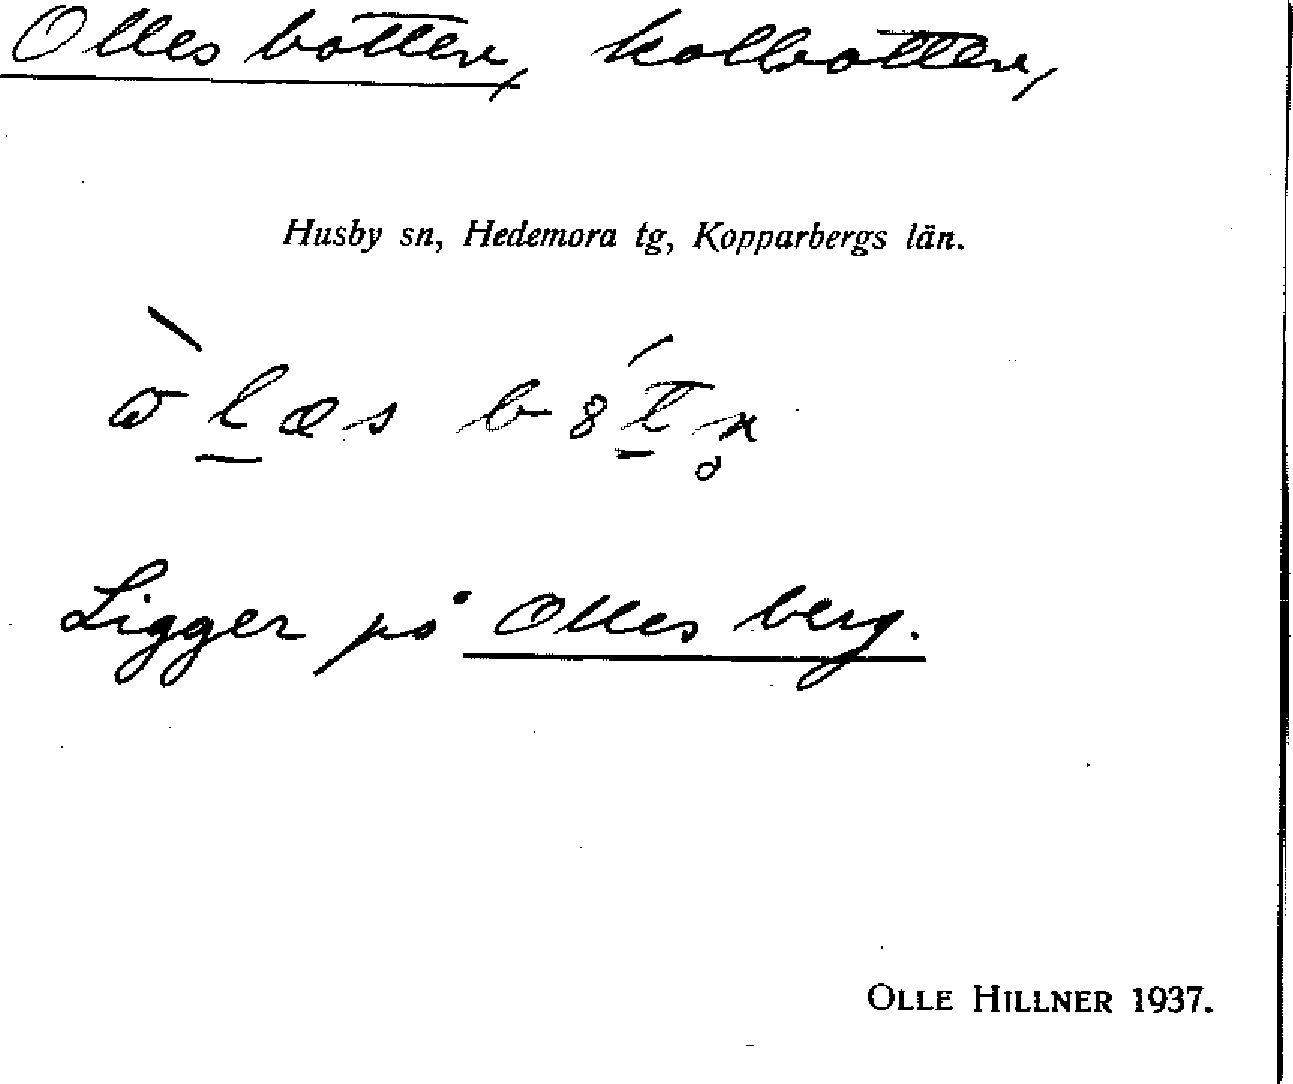 Olles botten, kolbotten,
Husby sn, Hedemora tg, Kopparbergs län.
Ligger på Olles berg.
OLLE HILLNER 1937.